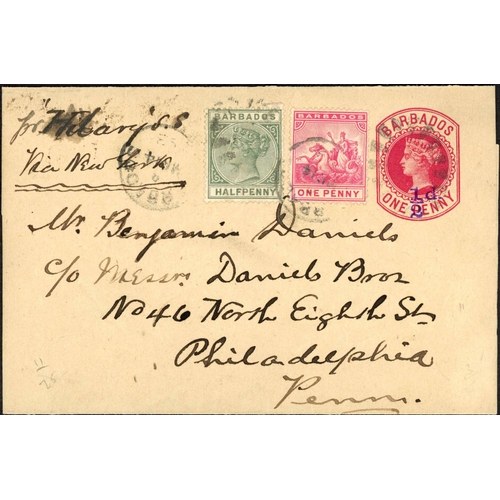 pr Hilary S.S
Via New York
BARBADOS
HALFPENNY
BARBADOS
ONE PENNY
BARBADOS
½d
ONE PENNY
Mr. Benjamin Daniels
c/o Messrs Daniels Bros
No 46 North Eighth St
Philadelphia
Penn.